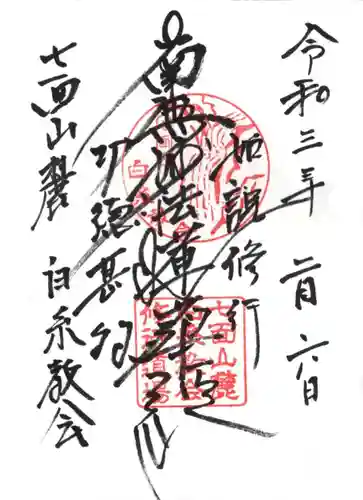 令和三年 二月 六日
如説修行
南無妙法蓮華経
功徳甚多
七面山麓 白糸教会
七面山麓
白糸教会
修行道場